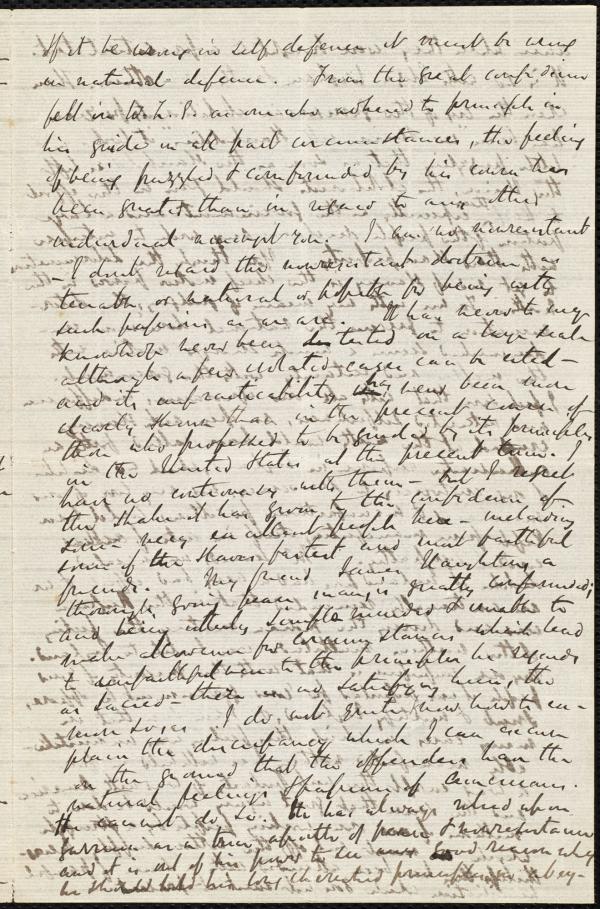 If it be wrong in self defence it must be wrong
in national defence. From the great confidence
felt in W.L.G. as one who adhered to principle in
his guide in all past circumstances, the feeling
of being puzzled & confounded by his course has
been greater than in regard to any other
individual except you. I am no nonresistant
- I don't regard the nonresistant doctrine as
tenable or natural or for being with
such passions as we are. It has never to my
knowledge never been tested on a large scale
although a few isolated cases can be cited -
and its impracticability has never been more
clearly shown than in the present course of
those who professed to be guided by its principles
in the United States at the present time. I
have no controversy with them - but I regret
the shake it has given to the confidence of
some very excellent people here - including
some of the slaves fastest and most faithful
friends. My friend James Haughton, a
thorough going peace man, is greatly confounded;
and being utterly simple minded & unable to
make allowance for circumstances which lead
to unfaithfulness to the principles he regards
as sacred - there is no satisfying him, the
more so, as I do not quite know how to ex-
plain the discrepancy which I can account
on the ground that the offenders have the
natural feelings & passions of Americans.
He cannot do so. He has always relied upon
Garrison as a true apostle of peace & nonresistance
and it is out of his power to see any good reason why
he should hold his long cherished principles in abey-